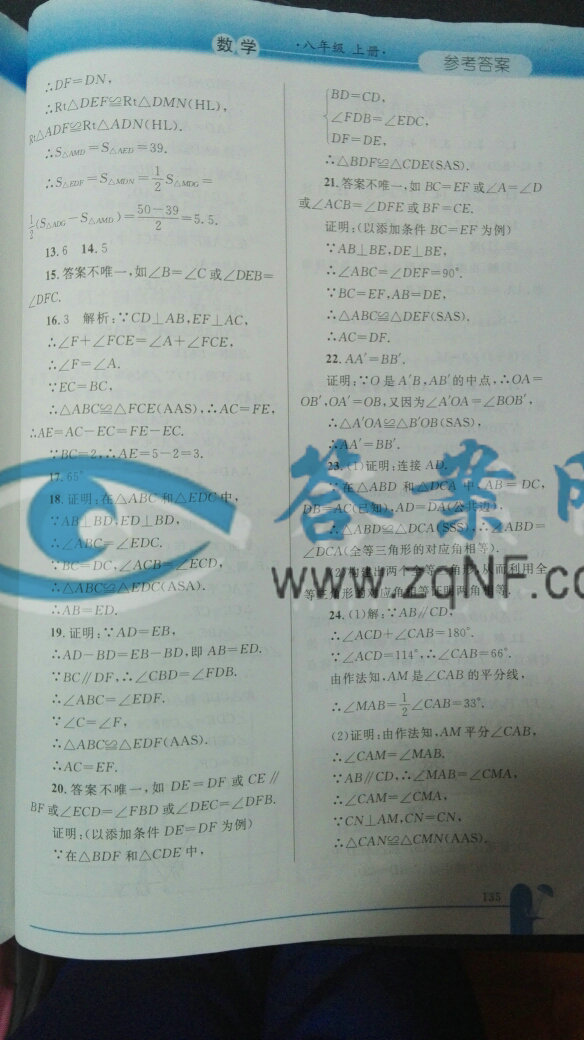 数学
·八年级 上册·
参考答案
∴DF=DN,
∴Rt△DEF≌Rt△DMN(HL),
Rt△ADF≌Rt△ADN(HL).
∴S△AMD=S△AED=39.
∴S△EDF=S△MDN=1/2 S△MDG=
1/2(S△ADG−S△AMD)=(50−39)/2=5.5.
13.6 14.5
15.答案不唯一,如∠B=∠C或∠DEB=
∠DFC.
16.3 解析:∵CD⊥AB,EF⊥AC,
∴∠F+∠FCE=∠A+∠FCE,
∴∠F=∠A.
∵EC=BC,
∴△ABC≌△FCE(AAS),∴AC=FE,
∴AE=AC−EC=FE−EC.
∵BC=2,∴AE=5−2=3.
17.65°
18.证明:在△ABC和△EDC中,
∵AB⊥BD,ED⊥BD,
∴∠ABC=∠EDC.
∵BC=DC,∠ACB=∠ECD,
∴△ABC≌△EDC(ASA).
∴AB=ED.
19.证明:∵AD=EB,
∴AD−BD=EB−BD,即AB=ED.
∵BC∥DF,∴∠CBD=∠FDB.
∴∠ABC=∠EDF.
∵∠C=∠F,
∴△ABC≌△EDF(AAS).
∴AC=EF.
20.答案不唯一,如 DE=DF或CE∥
BF或∠ECD=∠FBD或∠DEC=∠DFB.
证明:(以添加条件DE=DF为例)
∵在△BDF和△CDE中,
BD=CD,
∠FDB=∠EDC,
DF=DE,
∴△BDF≌△CDE(SAS).
21.答案不唯一,如BC=EF或∠A=∠D
或∠ACB=∠DFE或BF=CE.
证明:(以添加条件BC=EF为例)
∵AB⊥BE,DE⊥BE,
∴∠ABC=∠DEF=90°.
∵BC=EF,AB=DE,
∴△ABC≌△DEF(SAS).
∴AC=DF.
22.AA′=BB′.
证明:∵O是A′B,AB′的中点,∴OA=
OB′,OA′=OB,又因为∠A′OA=∠BOB′,
∴△A′OA≌△B′OB(SAS),
∴AA′=BB′.
23.(1)证明:连接AD.
∵在△ABD和△DCA中,AB=DC,
DB=AC(已知),AD=DA(公共边),
∴△ABD≌△DCA(SSS),∴∠ABD=
∠DCA(全等三角形的对应角相等).
(2)构建出两个全等三角形,从而利用全
等三角形的对应角相等证明两角相等.
24.(1)解:∵AB∥CD,
∴∠ACD+∠CAB=180°.
∵∠ACD=114°,∴∠CAB=66°.
由作法知,AM是∠CAB的平分线,
∴∠MAB=1/2∠CAB=33°.
(2)证明:由作法知,AM平分∠CAB,
∴∠CAM=∠MAB.
∵AB∥CD,∴∠MAB=∠CMA,
∴∠CAM=∠CMA,
∵CN⊥AM,CN=CN,
∴△CAN≌△CMN(AAS).
135
答案
www.zqNF.com